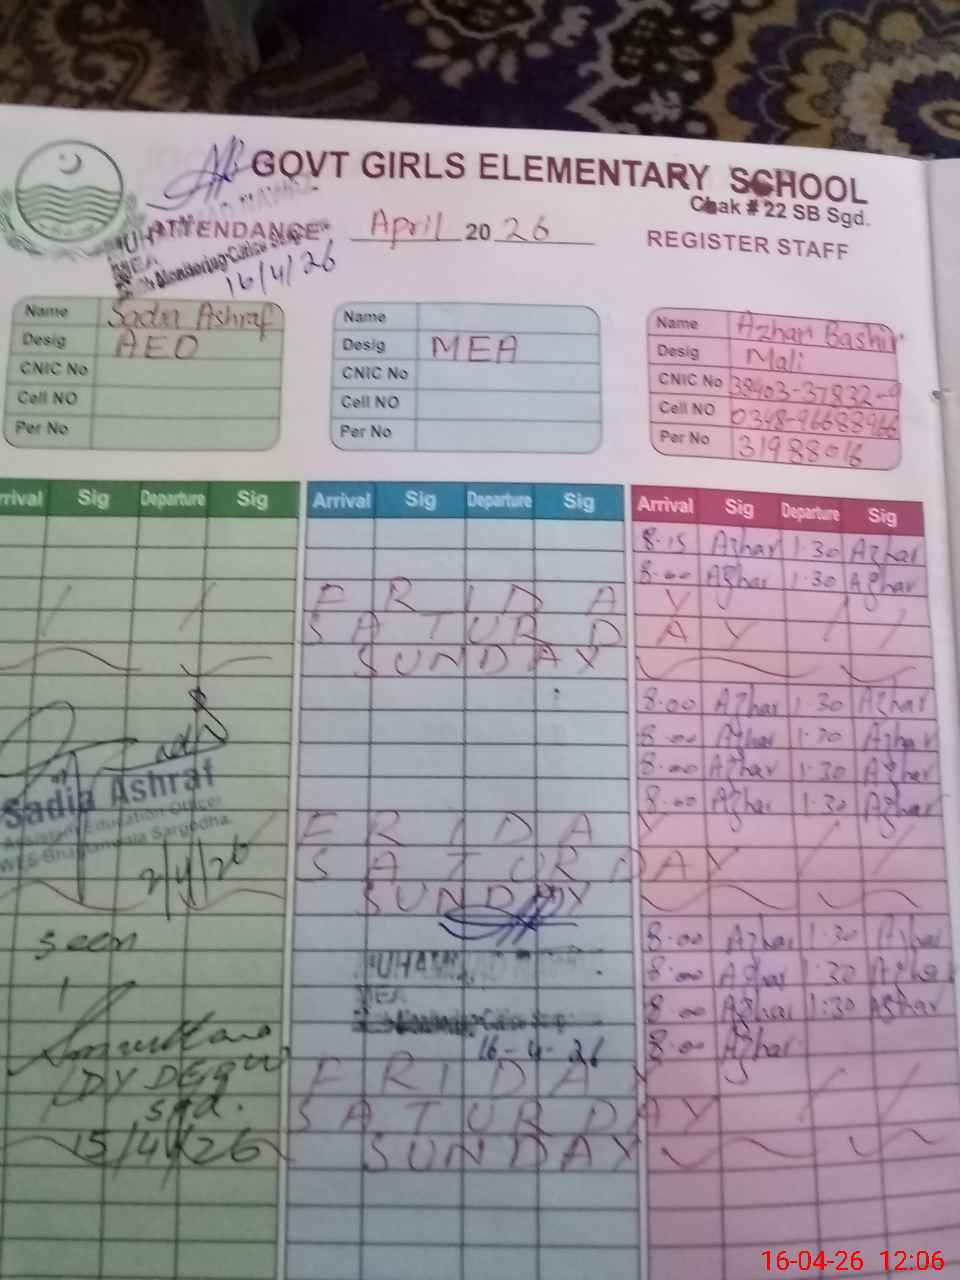 GOVT GIRLS ELEMENTARY SCHOOL
Chak # 22 SB Sgd.
ATTENDANCE April 2026
REGISTER STAFF
MEA
Monitoring
16/4/26
Name Sadia Ashraf
Desig AEO
CNIC No
Cell NO
Per No
Name
Desig MEA
CNIC No
Cell NO
Per No
Name Azhar Bashir
Desig Mali
CNIC No 38403-37832-9
Cell NO 0348-9668896
Per No 31988016
Arrival Sig Departure Sig
Arrival Sig Departure Sig
Arrival Sig Departure Sig
8.15 Azhar 1.30 Azhar
8.00 Azhar 1.30 Azhar
FRIDAY
SATURDAY
SUNDAY
8.00 Azhar 1.30 Azhar
8.00 Azhar 1.30 Azhar
8.00 Azhar 1.30 Azhar
8.00 Azhar 1.30 Azhar
Sadia Ashraf
Assistant Education Officer
Sargodha.
FRIDAY
SATURDAY
2/4/26
SUNDAY
seen
8.00 Azhar 1.30 Azhar
8.00 Azhar 1.30 Azhar
MEA
8.00 Azhar 1:30 Azhar
Monitoring
16-4-26
8.00 Azhar
DY DEO W
FRIDAY
sgd.
SATURDAY
15/4/26
SUNDAY
16-04-26 12:06